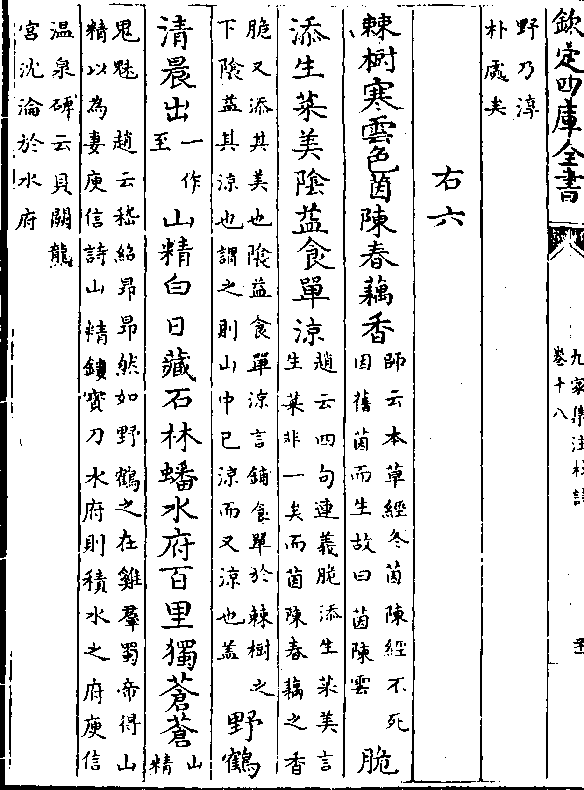 欽定四庫全書
九家集注杜詩
卷十八
野乃淳
朴處矣
右六
棘樹寒雲色茵陳春藕香
師云本草經冬茵陳經不死
因舊茵而生故曰茵陳雲
脆
添生菜美陰益食單涼
趙云四句連義脆添生菜美言
生菜非一矣而茵陳春藕之香
脆又添其美也陰益食單涼言鋪食單於棘樹之
下陰益其涼也謂之則山中已涼而又涼也盖
野鶴
清晨出
一作
至
山精白日藏石林蟠水府百里獨蒼蒼
山
精
鬼魅 趙云嵇紹昂昂然如野鶴之在雞羣蜀帝得山
精以為妻庾信詩山精鏤寳刀水府則積水之府庾信
温泉碑云貝闕龍
宮沈淪於水府